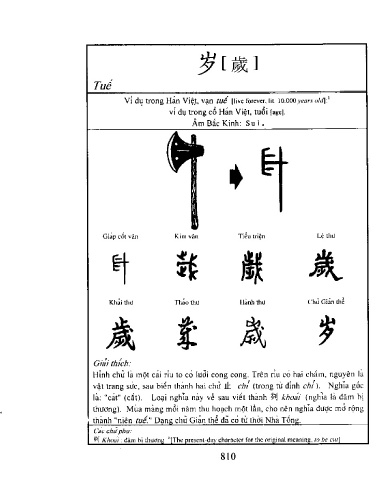 岁 [ 歲 ]
Tuế
Ví dụ trong Hán Việt, vạn tuế [live forever, lit 10.000 years old];¹
ví dụ trong cổ Hán Việt, tuổi [age].
Âm Bắc Kinh: Suì.
Giáp cốt văn Kim văn Tiểu triện Lệ thư
歲
Khải thư Thảo thư Hành thư Chữ Giản thể
歲 歲 岁
Giải thích:
Hình chữ là một cái rìu to có lưỡi cong cong. Trên rìu có hai chấm, nguyên là
vật trang sức, sau biến thành hai chữ 止 chỉ (trong từ đình chỉ). Nghĩa gốc
là: "cát" (cắt). Loại nghĩa này về sau viết thành 刿 khoái (nghĩa là đâm bị
thương). Mùa màng mỗi năm thu hoạch một lần, cho nên nghĩa được mở rộng
thành "niên tuế." Dạng chữ Giản thể đã có từ thời Nhà Tống.
Các chữ phụ:
刿 Khoái, đâm bị thương "[The present-day character for the original meaning, to be cut]
810